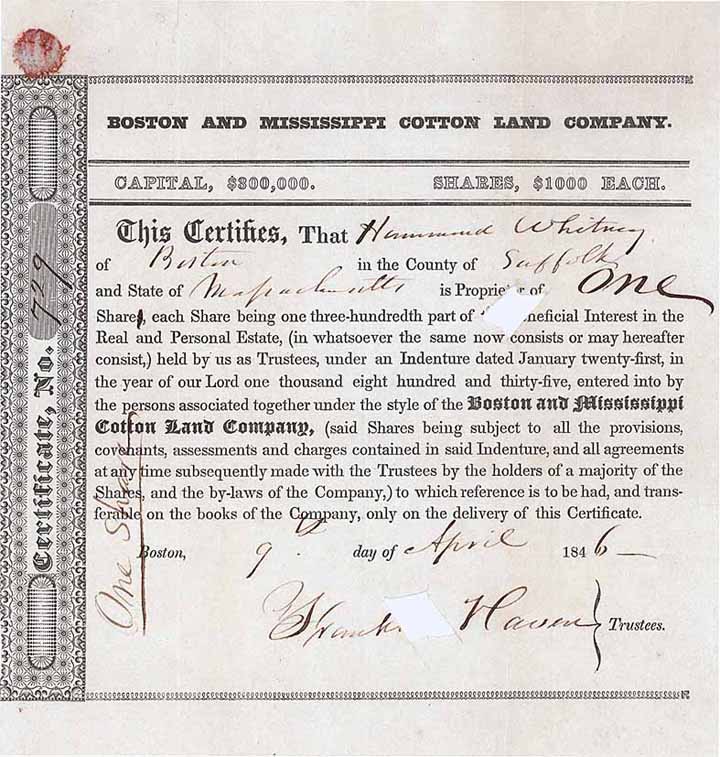 BOSTON AND MISSISSIPPI COTTON LAND COMPANY.
CAPITAL, $300,000. SHARES, $1000 EACH.
This Certifies, That Hammond Whitney
of Boston in the County of Suffolk
and State of Massachusetts is Proprietor of One
Share, each Share being one three-hundredth part of eneficial Interest in the
Real and Personal Estate, (in whatsoever the same now consists or may hereafter
consist,) held by us as Trustees, under an Indenture dated January twenty-first, in
the year of our Lord one thousand eight hundred and thirty-five, entered into by
the persons associated together under the style of the Boston and Mississippi
Cotton Land Company, (said Shares being subject to all the provisions,
covenants, assessments and charges contained in said Indenture, and all agreements
at any time subsequently made with the Trustees by the holders of a majority of the
Shares, and the by-laws of the Company,) to which reference is to be had, and trans-
ferable on the books of the Company, only on the delivery of this Certificate.
Boston, 9th day of April 1846
Frankl Haven Trustees.
Certificate, No. 729
One Share